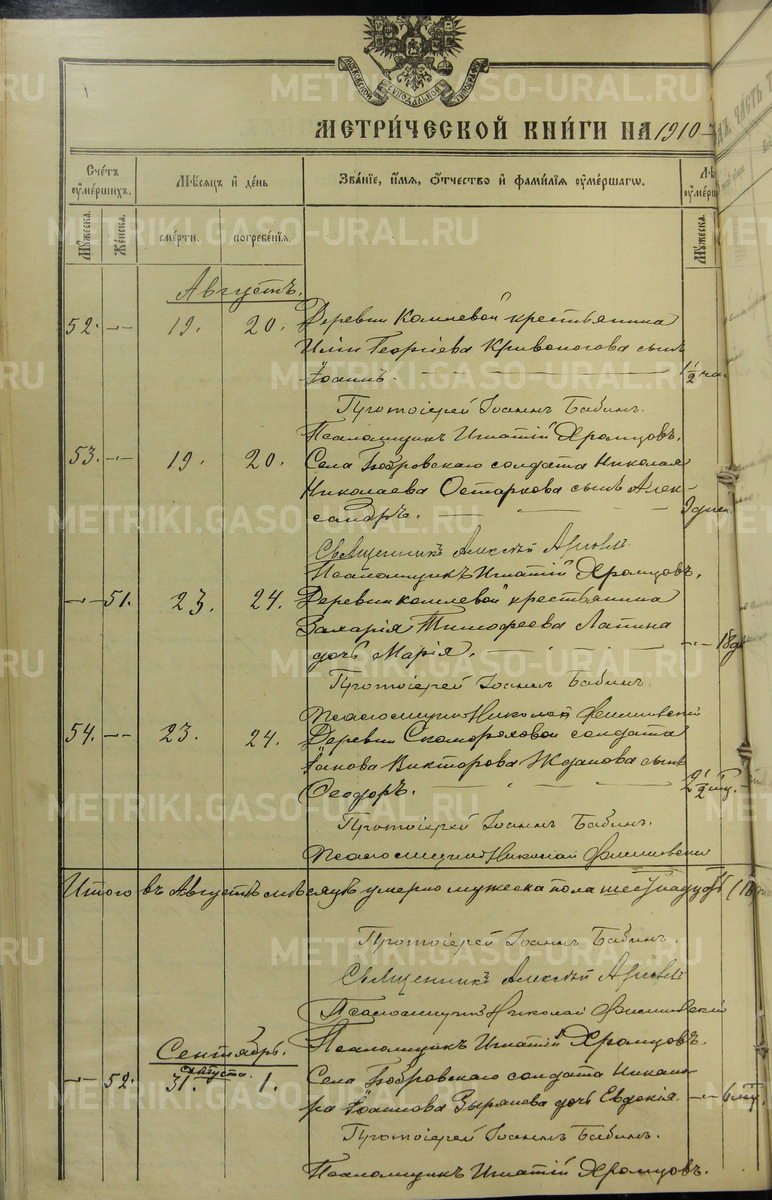 МЕТРИЧЕСКОЙ КНИГИ НА 1910
Счетъ умершихъ.
Мѣсяцъ и день
Званіе, имя, отчество и фамилія умершагѡ.
Мужеска.
Женска.
смерти.
погребенія.
Мужеска.
Августъ.
52. — 19. 20. Деревни Комлевой крестьянина
Иліи Георгіева Кривоногова сынъ
Іоаннъ. 1 1/2 ча.
Протоіерей Іоаннъ Бабинъ.
Псаломщикъ Игнатій Хромцовъ.
53. — 19. 20. Села солдата Николая
Николаева сынъ Алек-
сандръ. дней.
Священникъ Алексѣй
Псаломщикъ Игнатій Хромцовъ.
— 51. 23. 24. Деревни Комлевой крестьянина
Захарія Тимофеева Лапина
дочь Марія. — 18
Протоіерей Іоаннъ Бабинъ.
Псаломщикъ Николай
54. — 23. 24. Деревни Скомороховой солдата
Іакова Викторова Жданова сынъ
Ѳеодоръ. 2 1/2
Протоіерей Іоаннъ Бабинъ.
Псаломщикъ Николай
Итого въ Августѣ мѣсяцѣ умерло мужеска пола
Протоіерей Іоаннъ Бабинъ.
Священникъ Алексѣй
Псаломщикъ Николай
Псаломщикъ Игнатій Хромцовъ.
Сентябрь.
Августа
— 52. 31. 1. Села солдата Никано-
ра Іоаннова Зырянова дочь Евдокія. — 6
Протоіерей Іоаннъ Бабинъ.
Псаломщикъ Игнатій Хромцовъ.
METRIKI.GASO-URAL.RU